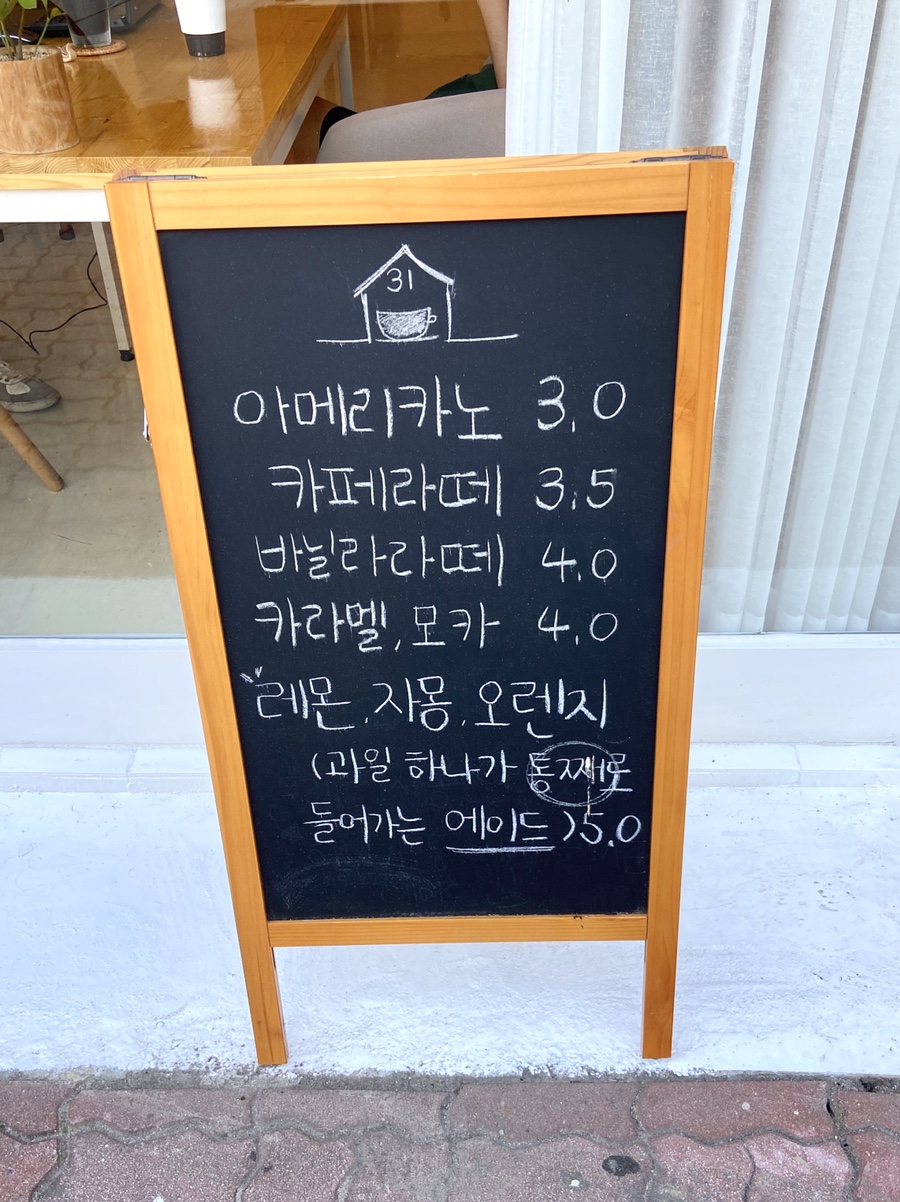 31
아메리카노 3.0
카페라떼 3.5
바닐라라떼 4.0
카라멜, 모카 4.0
레몬, 자몽, 오렌지
(과일 하나가 통째로
들어가는 에이드) 5.0